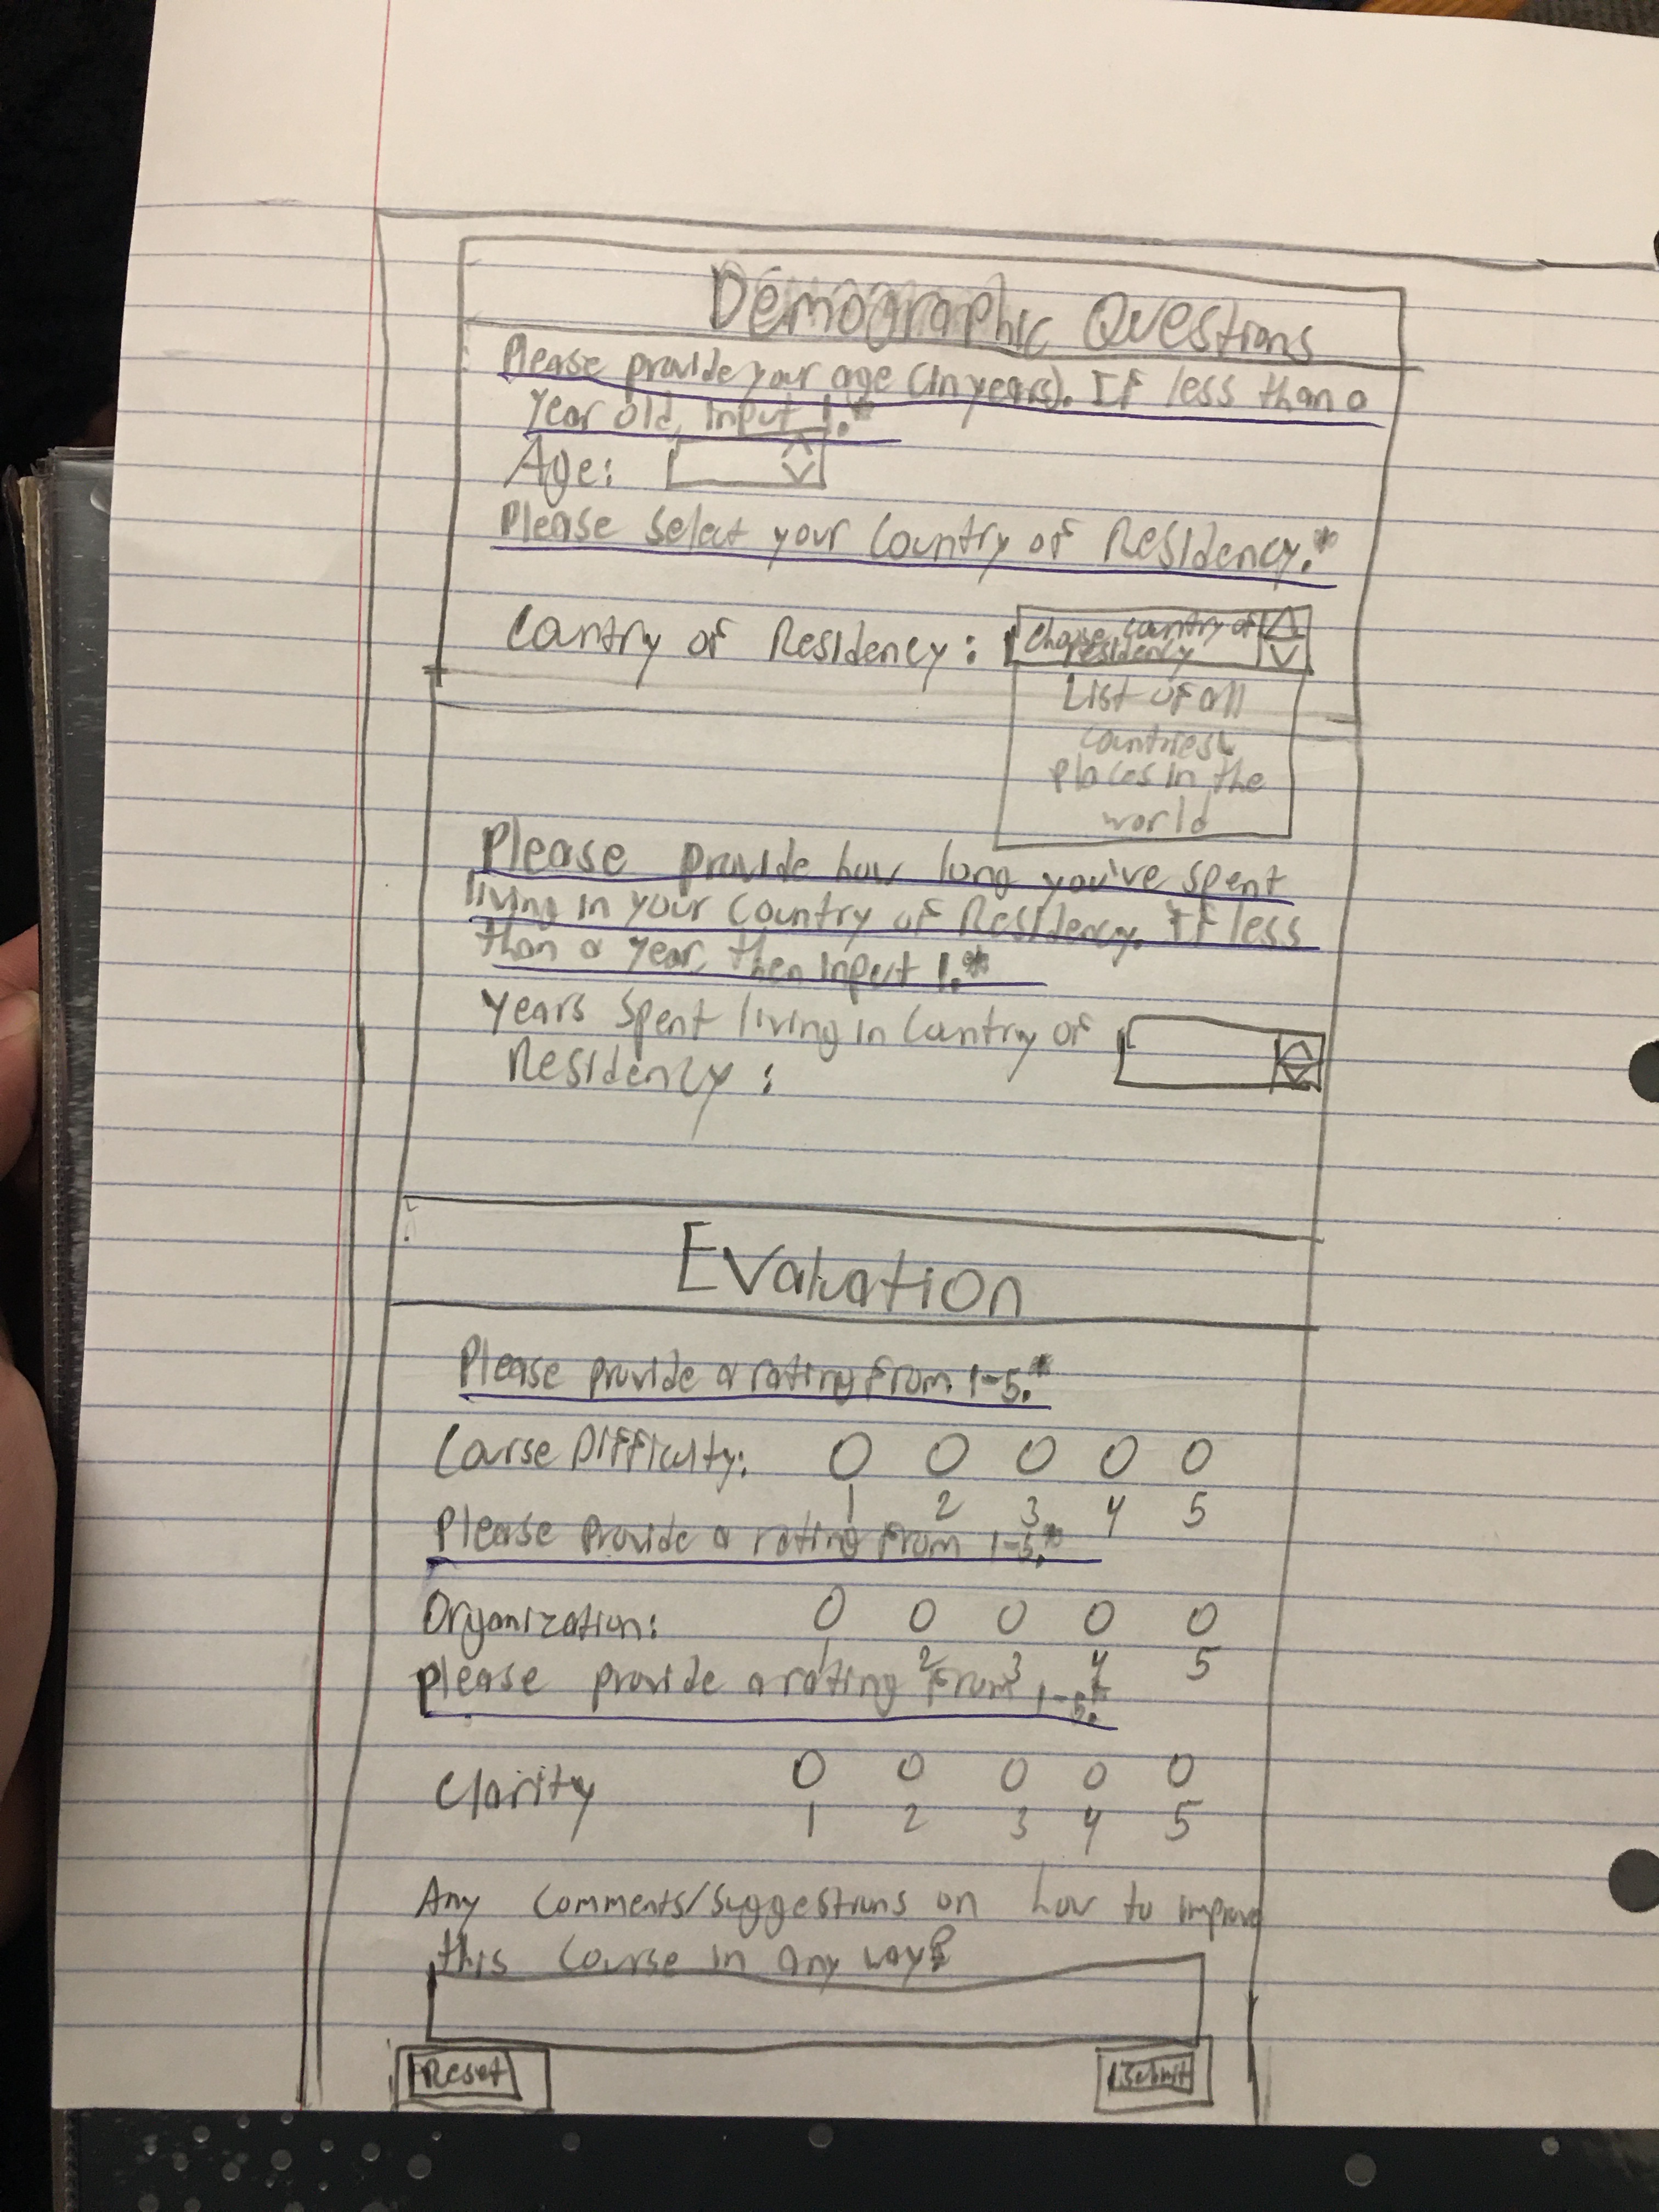 Demographic Questions
Please provide your age (in years). If less than a
year old, input 1.*
Age:
Please select your Country of Residency.*
Country of Residency: Choose country of
residency
List of all
countries &
places in the
world
Please provide how long you've spent
living in your Country of Residency. If less
than a year, then input 1.*
years spent living in Country of
Residency:
Evaluation
Please provide a rating from 1-5.*
Course Difficulty:
1 2 3 4 5
Please provide a rating from 1-5.*
Organization:
1 2 3 4 5
please provide a rating from 1-5.*
Clarity
1 2 3 4 5
Any comments/suggestions on how to improve
this course in any way?
Reset Submit